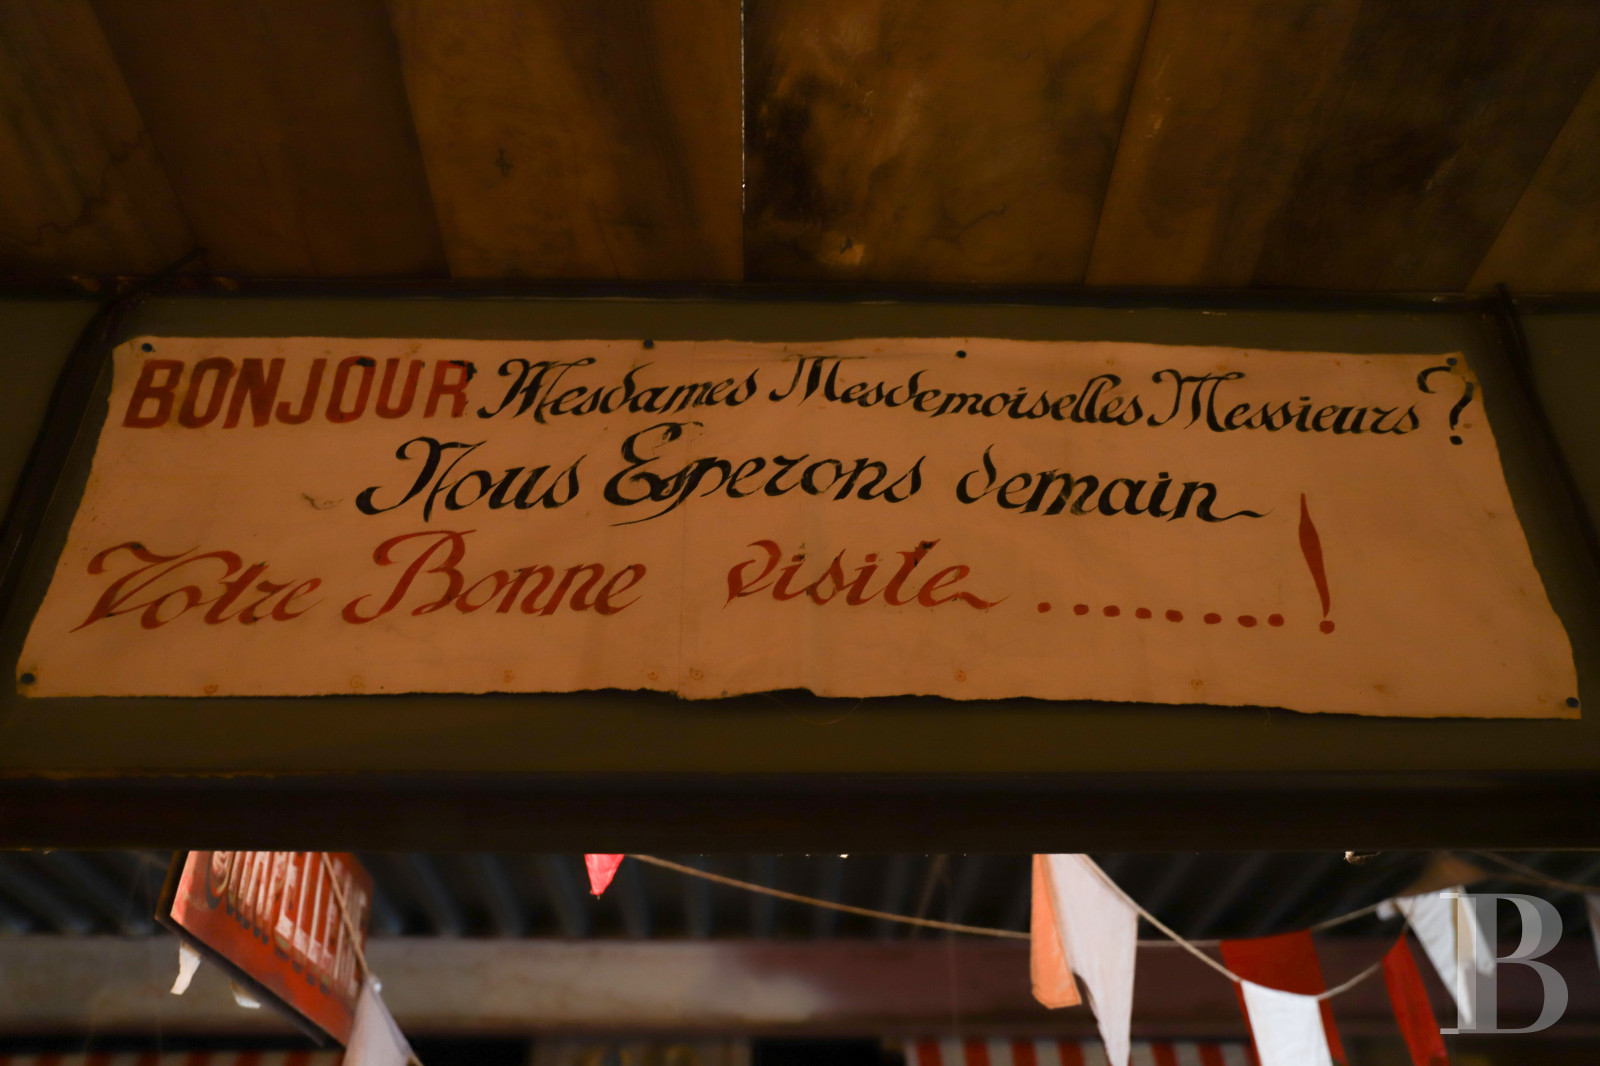 BONJOUR Mesdames Mesdemoiselles Messieurs ?
Nous Esperons demain
Votre Bonne visite ........!
B